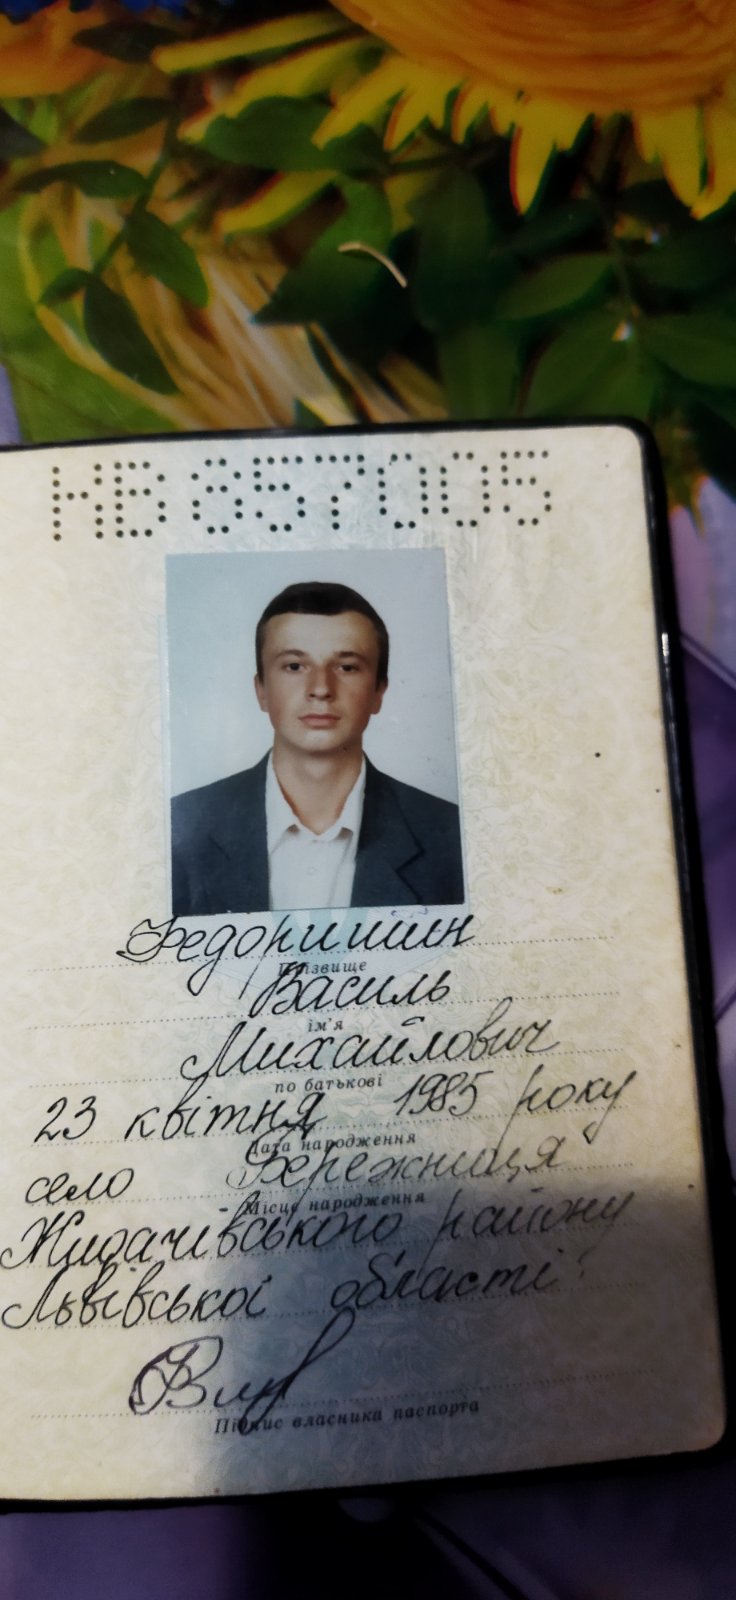 НВ 857005
Федоришин
Прізвище
Василь
ім'я
Михайлович
по батькові
23 квітня 1985 року
Дата народження
село Бережниця
Місце народження
Жидачівського району
Львівської області
Підпис власника паспорта